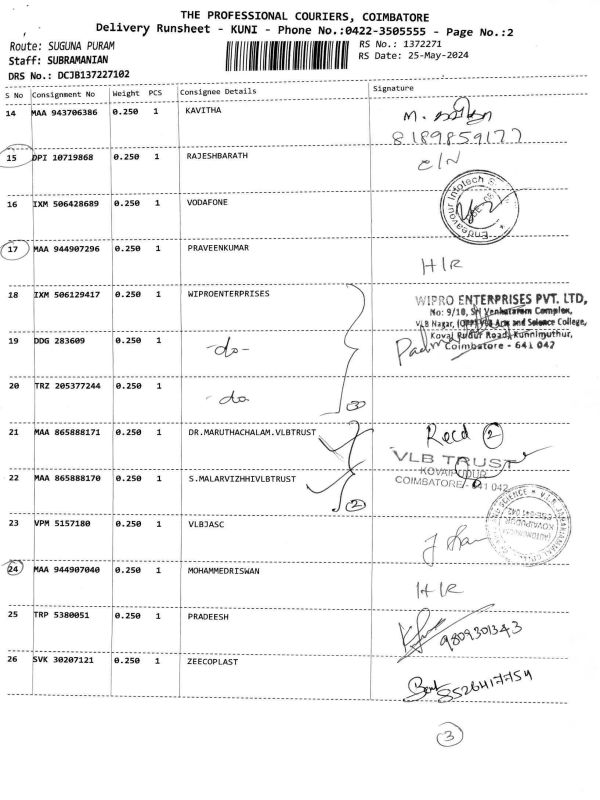 THE PROFESSIONAL COURIERS, COIMBATORE
Delivery Runsheet - KUNI - Phone No.:0422-3505555 - Page No.:2
Route: SUGUNA PURAM
RS No.: 1372271
Staff: SUBRAMANIAN
RS Date: 25-May-2024
DRS No.: DCJB137227102
S No Consignment No Weight PCS Consignee Details Signature
14 MAA 943706386 0.250 1 KAVITHA
8189859177
15 DPI 10719868 0.250 1 RAJESHBARATH C/N
16 IXM 506428689 0.250 1 VODAFONE
Endeavour Infotech
17 MAA 944907296 0.250 1 PRAVEENKUMAR H/R
18 IXM 506129417 0.250 1 WIPROENTERPRISES
WIPRO ENTERPRISES PVT. LTD,
No: 9/10, Sri Venkataram Complex,
VLB Nagar, (OPP) VLB Arts and Science College,
Koval Pudur Road, Kunnimuthur,
Coimbatore - 641 042
19 DDG 283609 0.250 1 -do-
20 TRZ 205377244 0.250 1 -do
3
21 MAA 865888171 0.250 1 DR.MARUTHACHALAM.VLBTRUST Recd 2
VLB TRUST
KOVAIPUDUR
COIMBATORE - 641 042
22 MAA 865888170 0.250 1 S.MALARVIZHHIVLBTRUST
2
23 VPM 5157180 0.250 1 VLBJASC
24 MAA 944907040 0.250 1 MOHAMMEDRISWAN H/R
25 TRP 5380051 0.250 1 PRADEESH
9809301343
26 SVK 30207121 0.250 1 ZEECOPLAST
8526417754
3